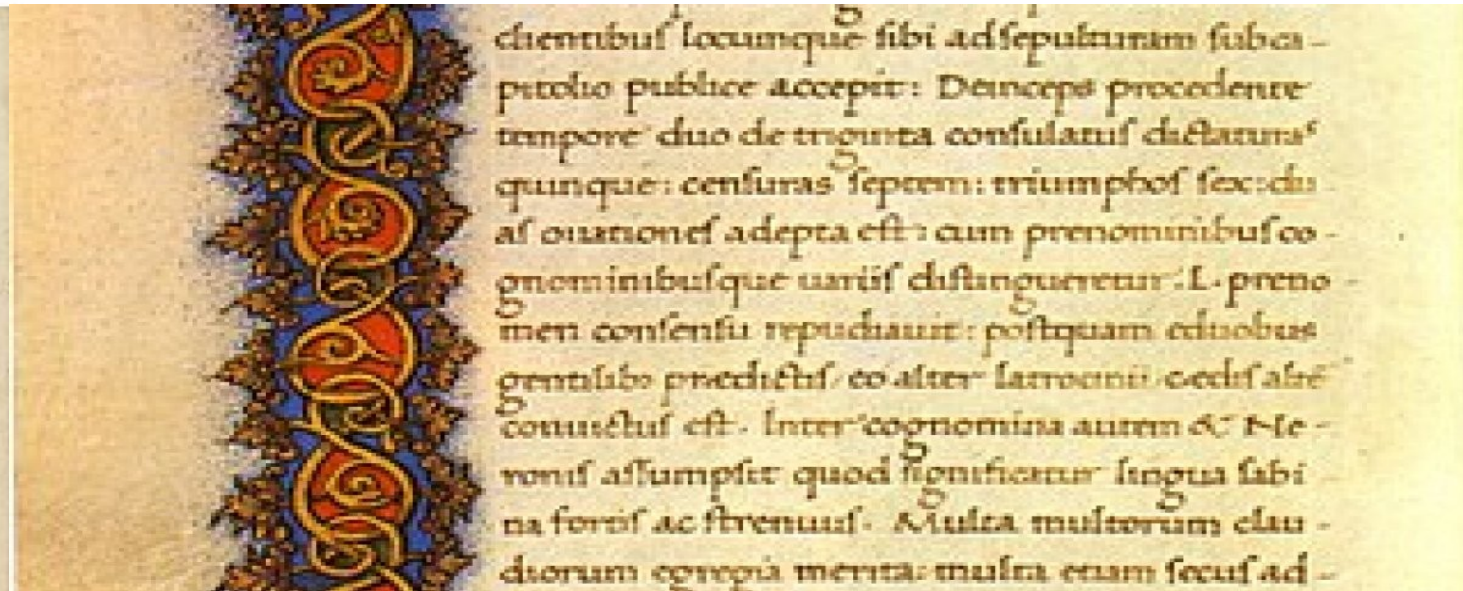 clientibuſ locumque ſibi adſepulturam ſubca-
pitolio publice accepit: Deinceps procedente
tempore duo de triginta conſulatuſ dictaturaſ
quinque: cenſuras ſeptem: triumphoſ ſex: du
aſ ouationeſ adepta eſt: cum prenominibuſ co-
gnominibuſque uariiſ diſtingueretur: L. preno-
men conſenſu repudiauit: poſtquam eduobus
gentilibꝫ predictiſ. eo alter latrocinii. cediſ alte
conuictuſ eſt. Inter cognomina autem & Ne-
roniſ aſſumpſit quod ſignificatur lingua ſabi
na fortiſ ac ſtrenuuſ. Multa multorum clau-
diorum egregia merita: multa etiam ſecuſ ad-